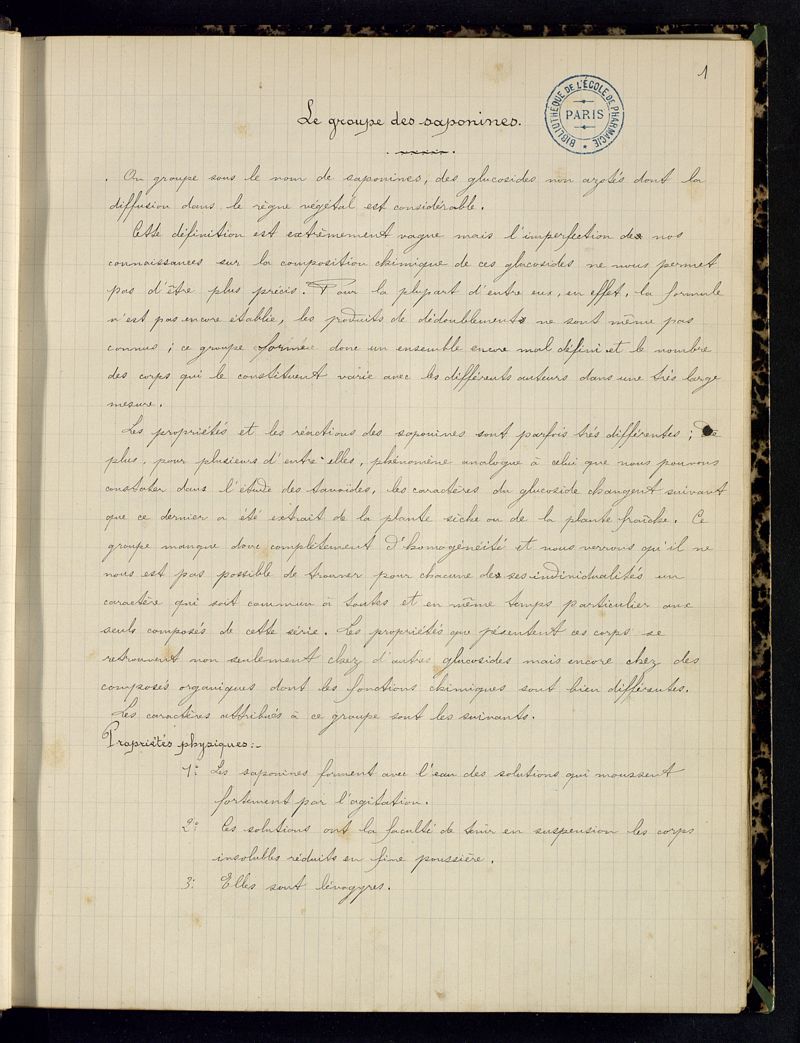 1
BIBLIOTHÈQUE DE L'ÉCOLE DE PHARMACIE
PARIS
Le groupe des saponines.
On groupe sous le nom de saponines, des glucosides non azotés dont la
diffusion dans le règne végétal est considérable.
Cette définition est extrêmement vague mais l'imperfection de nos
connaissances sur la composition chimique de ces glucosides ne nous permet
pas d'être plus précis. Pour la plupart d'entre eux, en effet, la formule
n'est pas encore établie, les produits de dédoublement ne sont même pas
connus; ce groupe forme donc un ensemble encore mal défini et le nombre
des corps qui le constituent varie avec les différents auteurs dans une très large
mesure.
Les propriétés et les réactions des saponines sont parfois très différentes; De
plus, pour plusieurs d'entre elles, phénomène analogue à celui que nous pouvons
constater dans l'étude des tanoïdes, les caractères du glucoside changent suivant
que ce dernier a été extrait de la plante sèche ou de la plante fraîche. Ce
groupe manque donc complètement d'homogénéité et nous verrons qu'il ne
nous est pas possible de trouver pour chacune de ses individualités un
caractère qui soit commun à toutes et en même temps particulier aux
seuls composés de cette série. Les propriétés que pésentent ces corps se
retrouvent non seulement chez d'autres glucosides mais encore chez des
composés organiques dont les fonctions chimiques sont bien différentes.
Les caractères attribués à ce groupe sont les suivants.
Propriétés physiques:-
1° Les saponines forment avec l'eau des solutions qui moussent
fortement par l'agitation.
2° Ces solutions ont la faculté de tenir en suspension les corps
insolubles réduits en fine poussière.
3° Elles sont lévogyres.